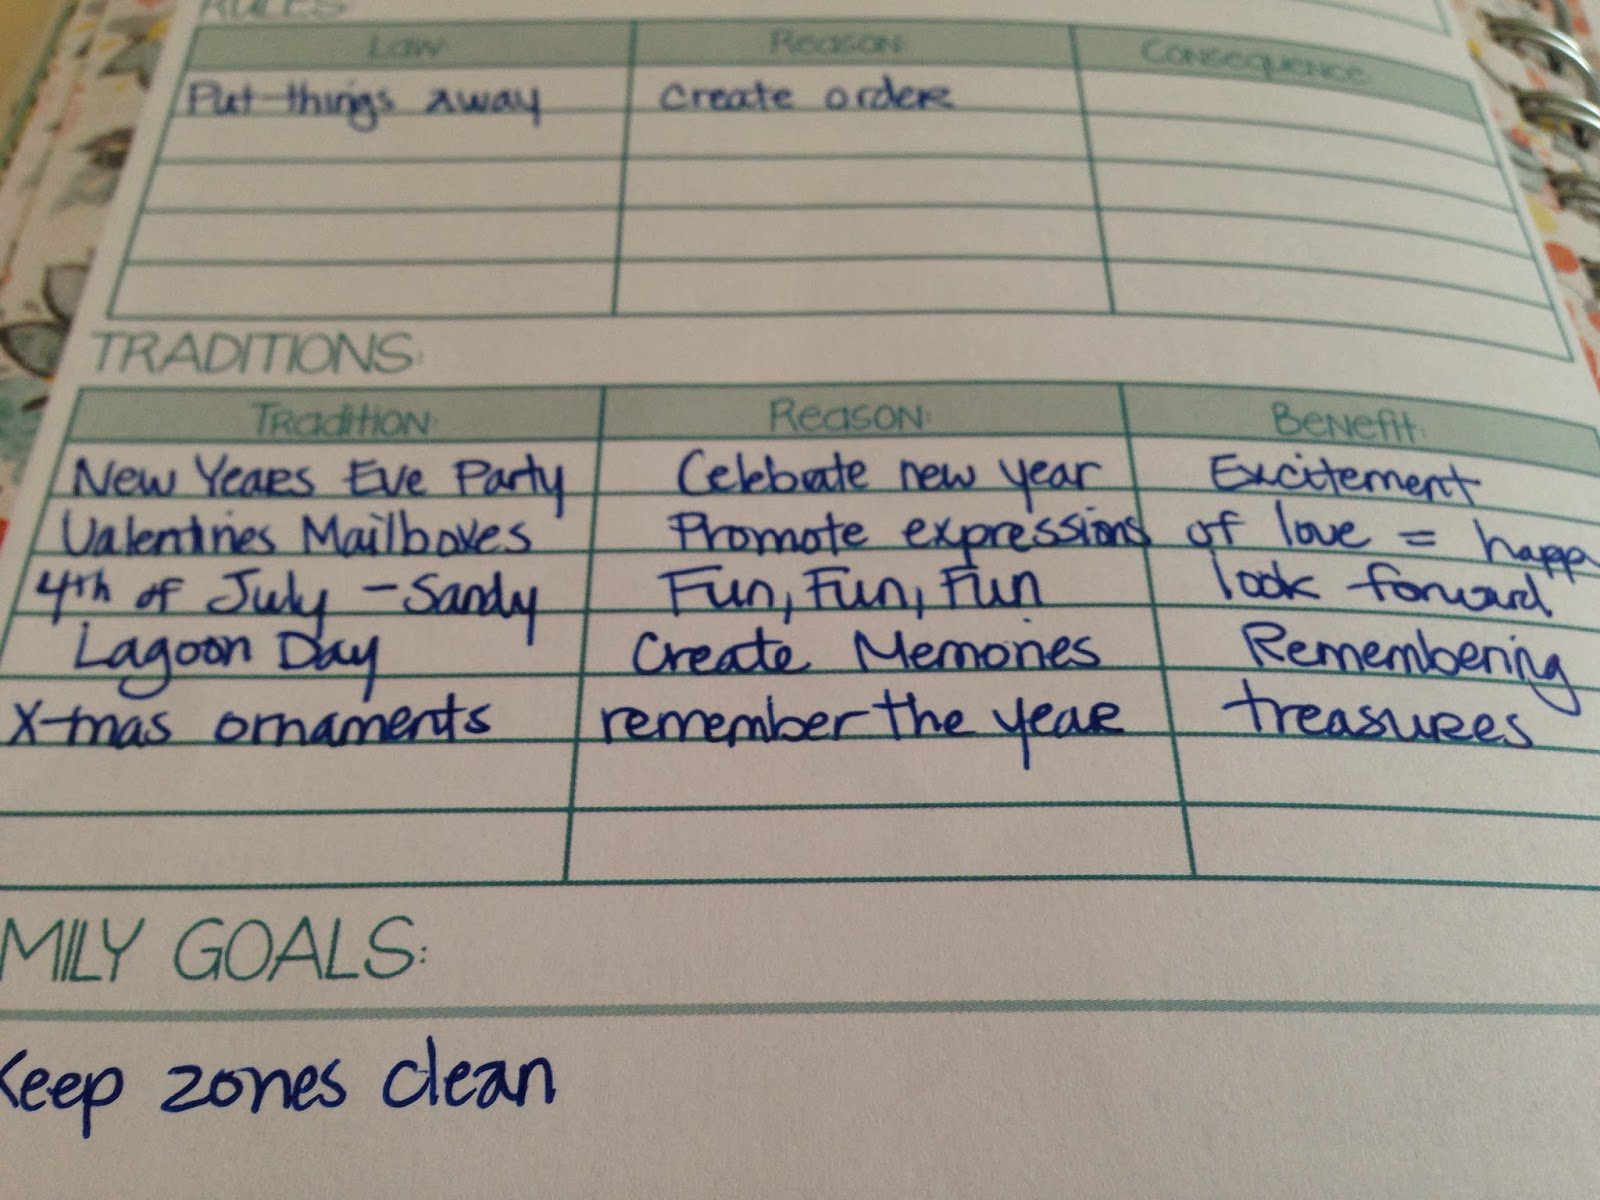 RULES:
Law: Reason: Consequence:
Put things away create order
TRADITIONS:
Tradition: Reason: Benefit:
New Years Eve Party Celebrate new year Excitement
Valentines Mailboxes Promote expressions of love = happ
4th of July - Sandy Fun, Fun, Fun look forward
Lagoon Day Create Memories Remembering
X-mas ornaments remember the year treasures
MILY GOALS:
Keep zones clean